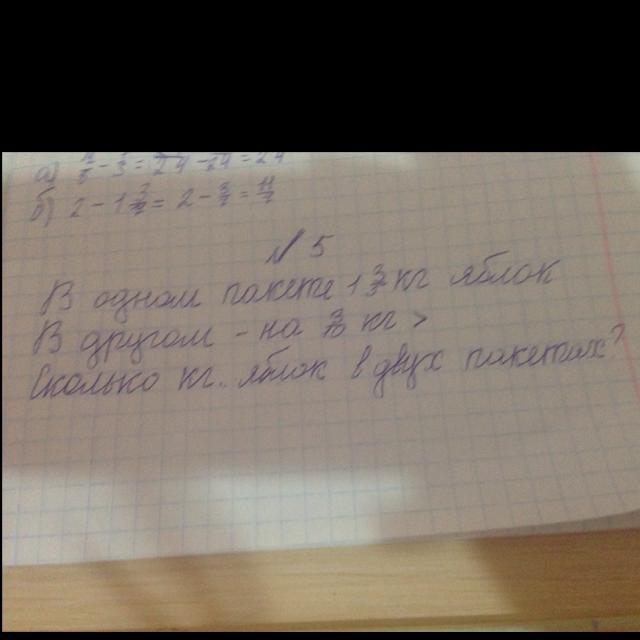 б) 2 - 1
№ 5
В одном пакете 1 3/7 кг яблок
В другом - на кг >
Сколько кг. яблок в двух пакетах?